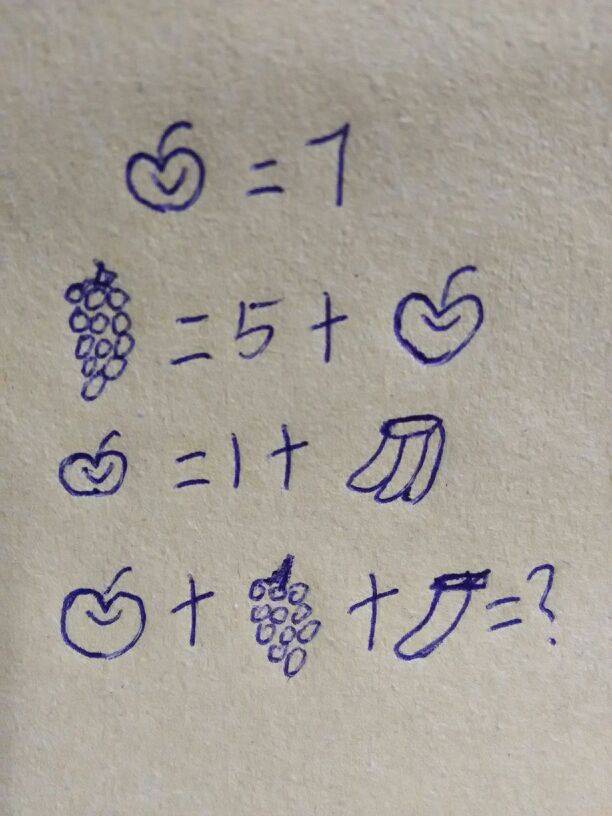 = 7
= 5 +
= 1 +
+ + = ?